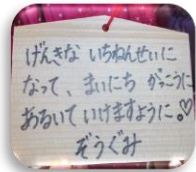 げんきな いちねんせいに
なって、まいにち がっこうに
あるいて いけますように。♡
ぞうぐみ